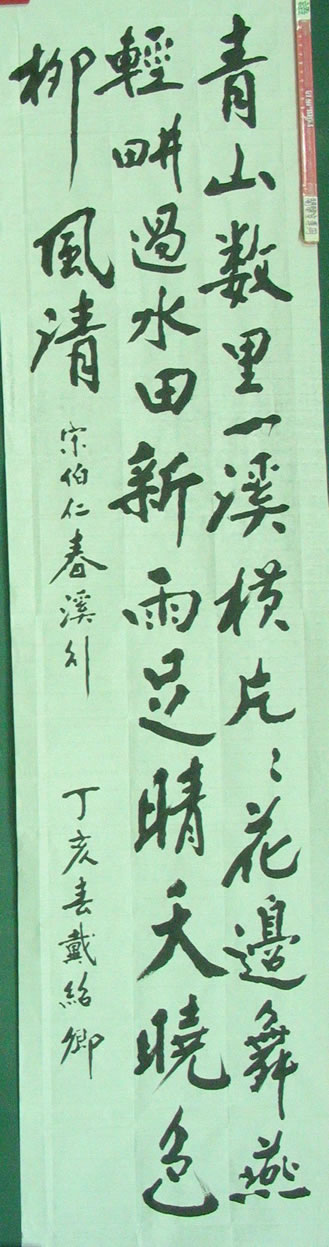 青山数里一溪横片々花邊舞燕
輕畊過水田新雨足晴天曉色
柳風清
宋伯仁春溪行
丁亥春戴紹卿